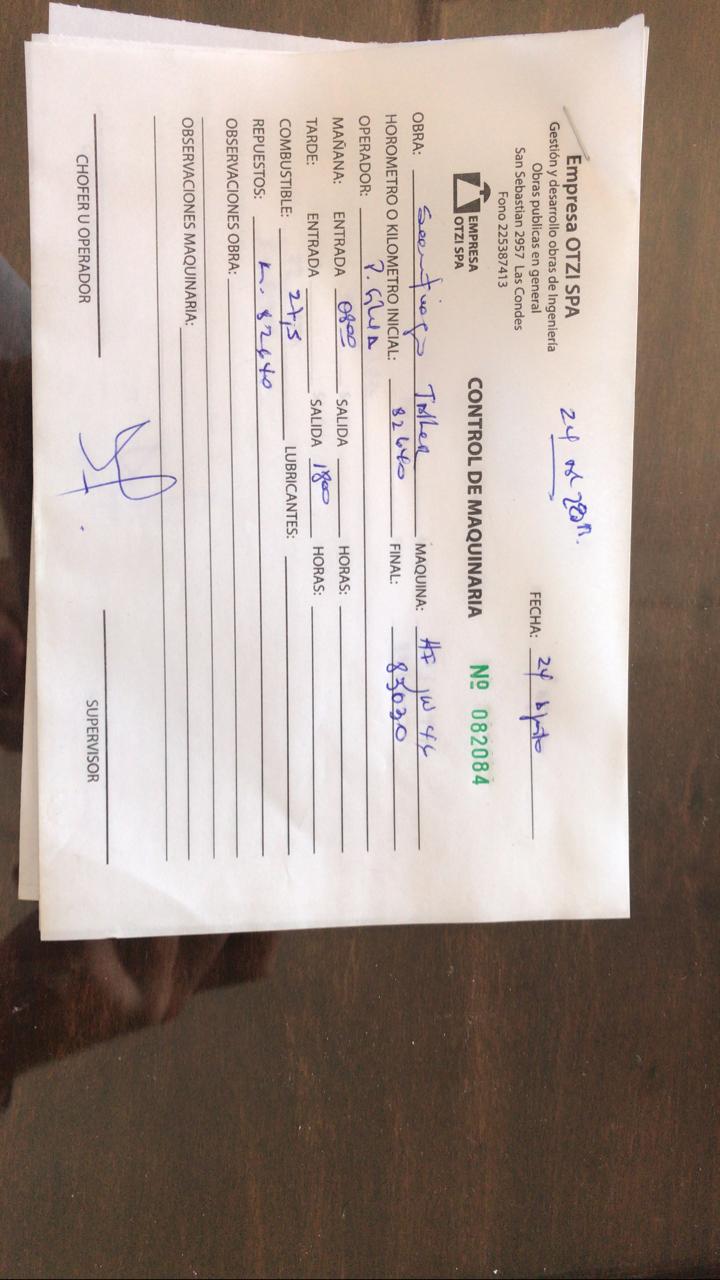 Empresa OTZI SPA
Gestión y desarrollo obras de Ingeniería
Obras publicas en general
San Sebastian 2957 Las Condes
Fono 225387413
24
FECHA: 24
EMPRESA
OTZI SPA
CONTROL DE MAQUINARIA Nº 082084
OBRA: Santiago Taller MAQUINA:
HOROMETRO O KILOMETRO INICIAL: 82640 FINAL: 83030
OPERADOR:
MAÑANA: ENTRADA 0800 SALIDA HORAS:
TARDE: ENTRADA SALIDA 1800 HORAS:
COMBUSTIBLE: 27,5 LUBRICANTES:
REPUESTOS: 82640
OBSERVACIONES OBRA:
OBSERVACIONES MAQUINARIA:
CHOFER U OPERADOR SUPERVISOR